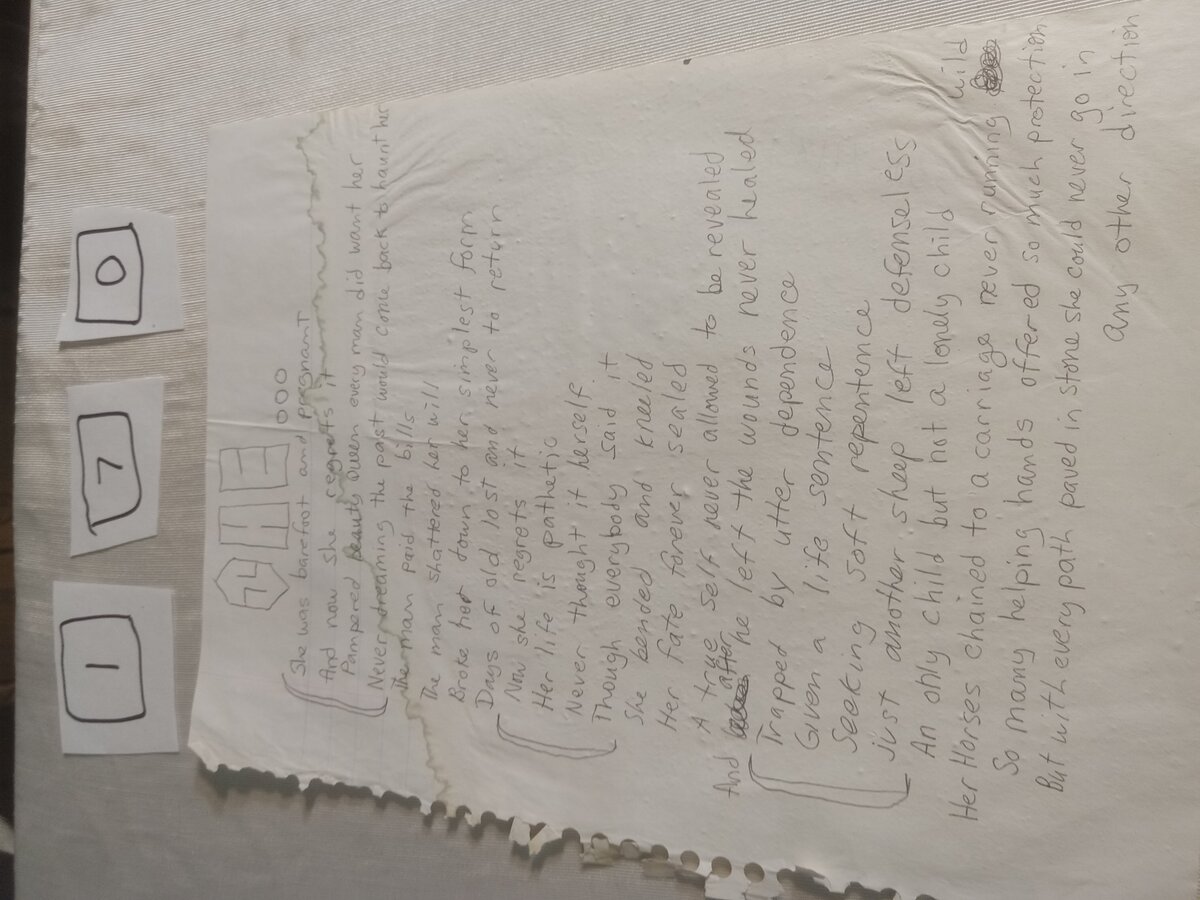 1 7 0
74 H 3
000
She was barefoot and pregnant
And now she regrets it
Pampered beauty Queen every man did want her
Never dreaming the past would come back to haunt her
The man paid the bills
The man shattered her will
Broke her down to her simplest form
Days of old lost and never to return
Now she regrets it
Her life is pathetic
Never thought it herself
Though everybody said it
She bended and kneeled
Her fate forever sealed
A true self never allowed to be revealed
And after he left the wounds never healed
Trapped by utter dependence
Given a life sentence
Seeking soft repentence
just another sheep left defenseless
An only child but not a lonely child
Her Horses chained to a carriage never running wild
So many helping hands offered so much protection
But with every path paved in stone she could never go in
any other direction